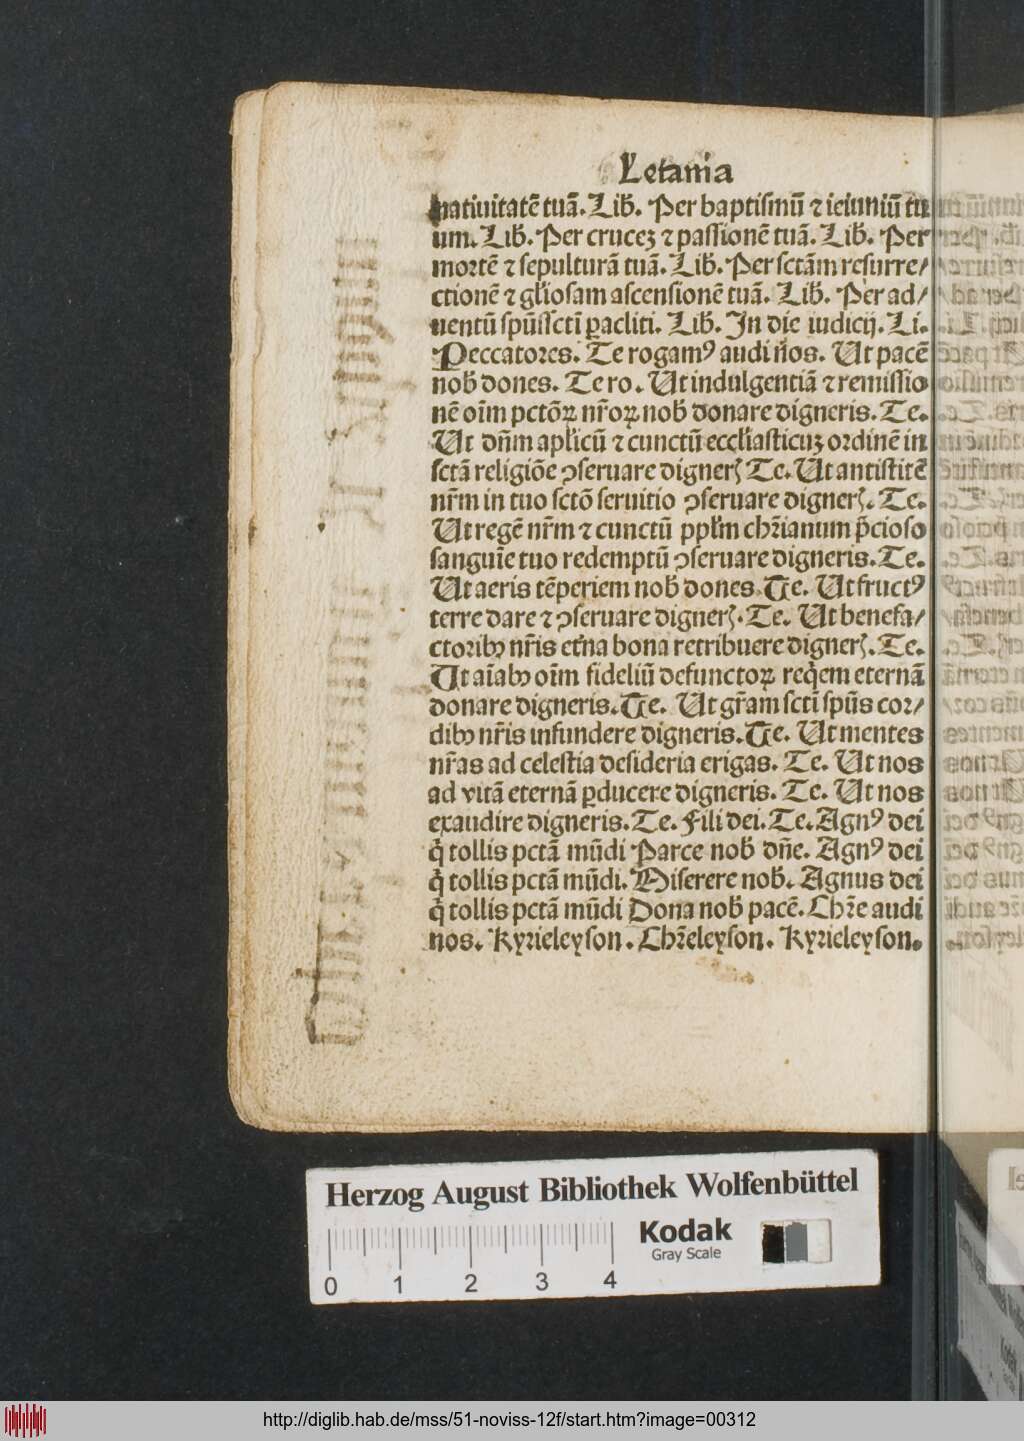 Letania
natiuitatē tuā. Lib̃. Per baptismū ⁊ ieiuniū tu
um. Lib̃. Per crucez ⁊ passionē tuā. Lib̃. Per
mortē ⁊ sepulturā tuā. Lib̃. Per sctā̄m resurre/
ctionē ⁊ gl̃iosam ascensionē tuā. Lib̃. Per ad/
uentū spūssctī ꝑacliti. Lib̃. In die iudicij. Li.
Peccatores. Te rogamꝰ audi nos. Ut pacē
nob̃ dones. Te ro. Ut indulgentiā ⁊ remissio
nē oīm pctōꝝ nr̃oꝝ nob̃ donare digneris. Te.
Ut dñm apl̃icū ⁊ cunctū eccl̃iasticuz ordinē in
sctā religiōe ꝯseruare digner̃ Te. Ut antistitē
nr̃m in tuo sctō seruitio ꝯseruare digner̃. Te.
Ut regē nr̃m ⁊ cunctū ppl̃m chr̃ianum p̄cioso
sanguīe tuo redemptū ꝯseruare digneris. Te.
Ut aeris tēperiem nob̃ dones. Te. Ut fructꝰ
terre dare ⁊ ꝯseruare digner̃. Te. Ut benefa/
ctoribꝫ nr̃is et̃na bona retribuere digner̃. Te.
Ut aīabꝫ oīm fideliū defunctoꝝ req̇em eternā
donare digneris. Te. Ut gr̃am sctī spūs cor/
dibꝫ nr̃is infundere digneris. Te. Ut mentes
nr̃as ad celestia desideria erigas. Te. Ut nos
ad vitā eternā ꝑducere digneris. Te. Ut nos
exaudire digneris. Te. Fili dei. Te. Agnꝰ dei
q̇ tollis pctā mūdi Parce nob̃ dñe. Agnꝰ dei
q̇ tollis pctā mūdi. Miserere nob̃. Agnus dei
q̇ tollis pctā mūdi Dona nob̃ pacē. Chr̃e audi
nos. Kyrieleyson. Chr̃eleyson. Kyrieleyson.
Herzog August Bibliothek Wolfenbüttel
Kodak
Gray Scale
0 1 2 3 4
http://diglib.hab.de/mss/51-noviss-12f/start.htm?image=00312